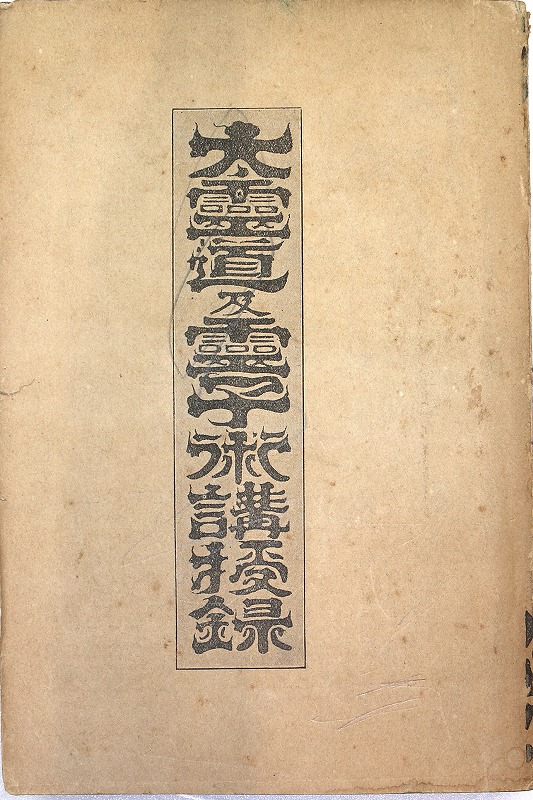 太靈道及靈子術講授録